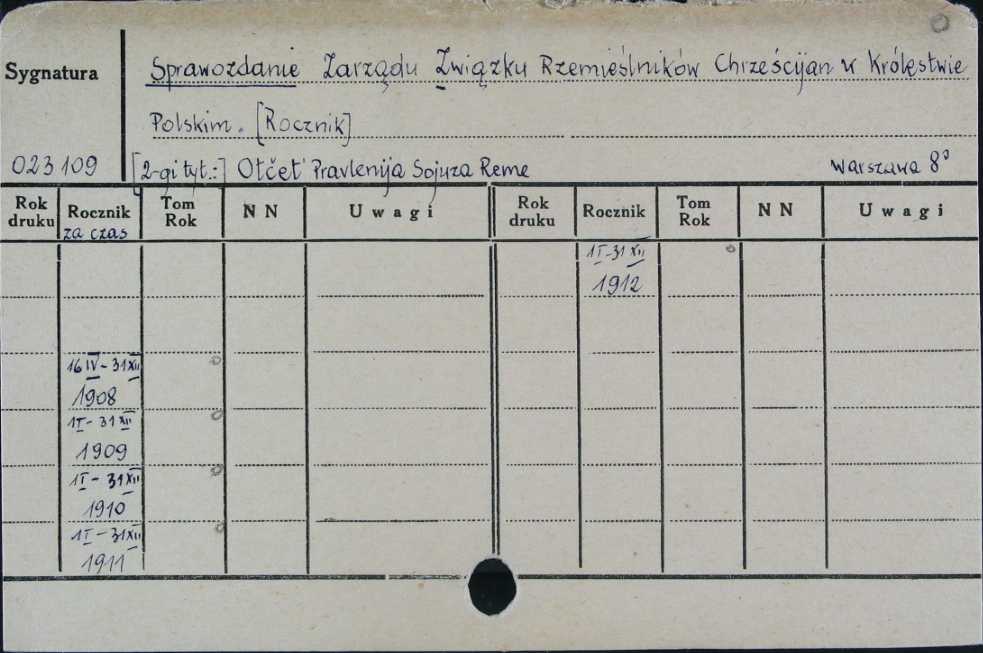 Sygnatura
Sprawozdanie Zarządu Związku Rzemieślników Chrześcijan w Królęstwie
Polskim. [Rocznik]
023109
[2-gi tyt.:] Otčet Pravlenija Sojuza Reme
Warszawa 8°
Rok druku Rocznik Tom Rok NN Uwagi Rok druku Rocznik Tom Rok NN Uwagi
za czas
1 I - 31 XII
1912
16 IV - 31 XII
1908
1 I - 31 XII
1909
1 I - 31 XII
1910
1 I - 31 XII
1911